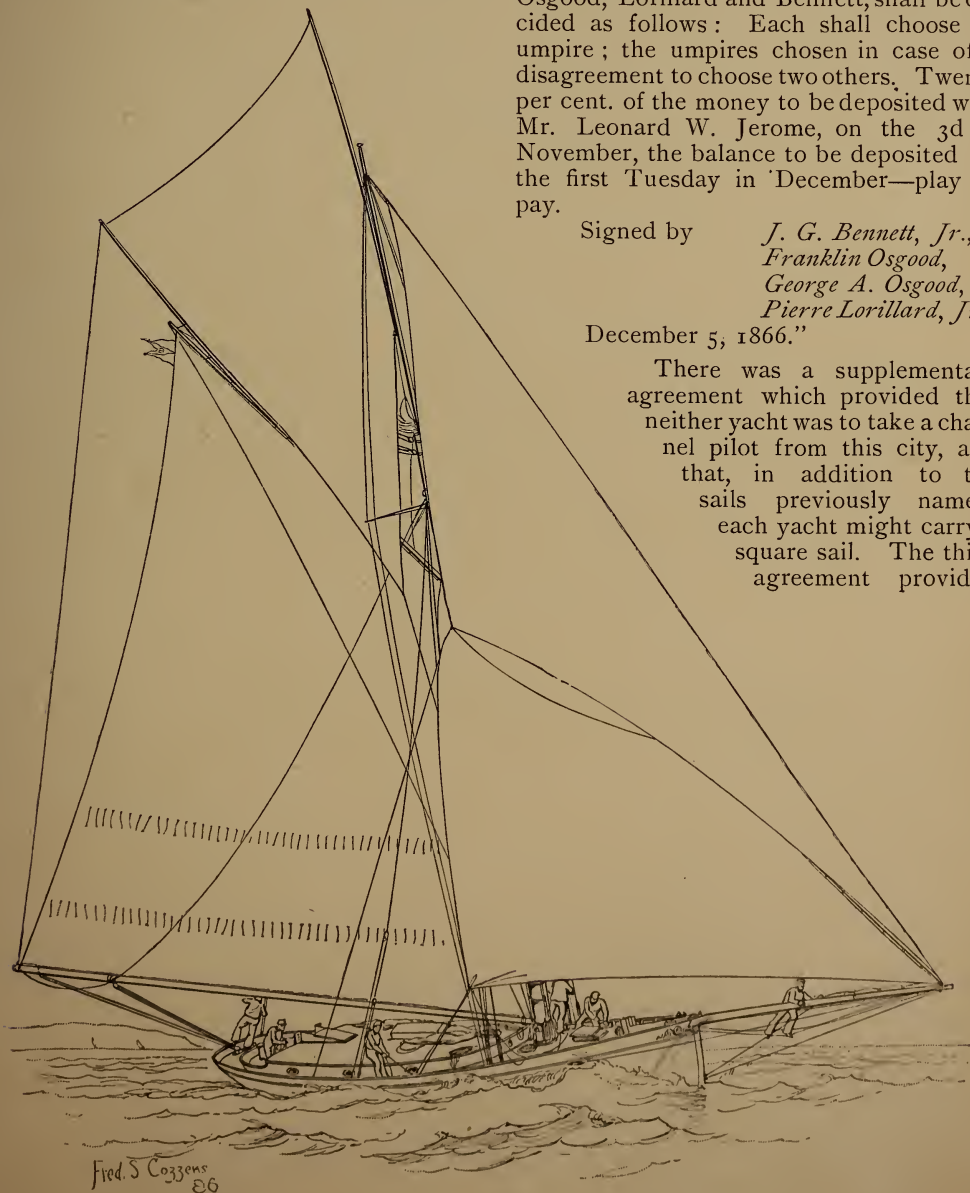 Osgood, Lorillard and Bennett, shall be
cided as follows: Each shall choose
umpire; the umpires chosen in case of
disagreement to choose two others. Twen
per cent. of the money to be deposited w
Mr. Leonard W. Jerome, on the 3d
November, the balance to be deposited
the first Tuesday in December—play
pay.
Signed by J. G. Bennett, Jr.,
Franklin Osgood,
George A. Osgood,
Pierre Lorillard, J
December 5, 1866.”
There was a supplementa
agreement which provided th
neither yacht was to take a cha
nel pilot from this city, a
that, in addition to t
sails previously name
each yacht might carry
square sail. The thi
agreement provid
Fred. S Cozzens
86